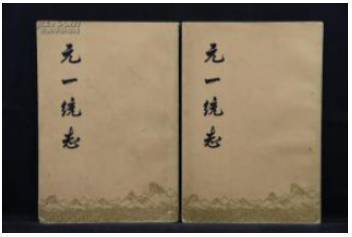 元一统志
元一统志